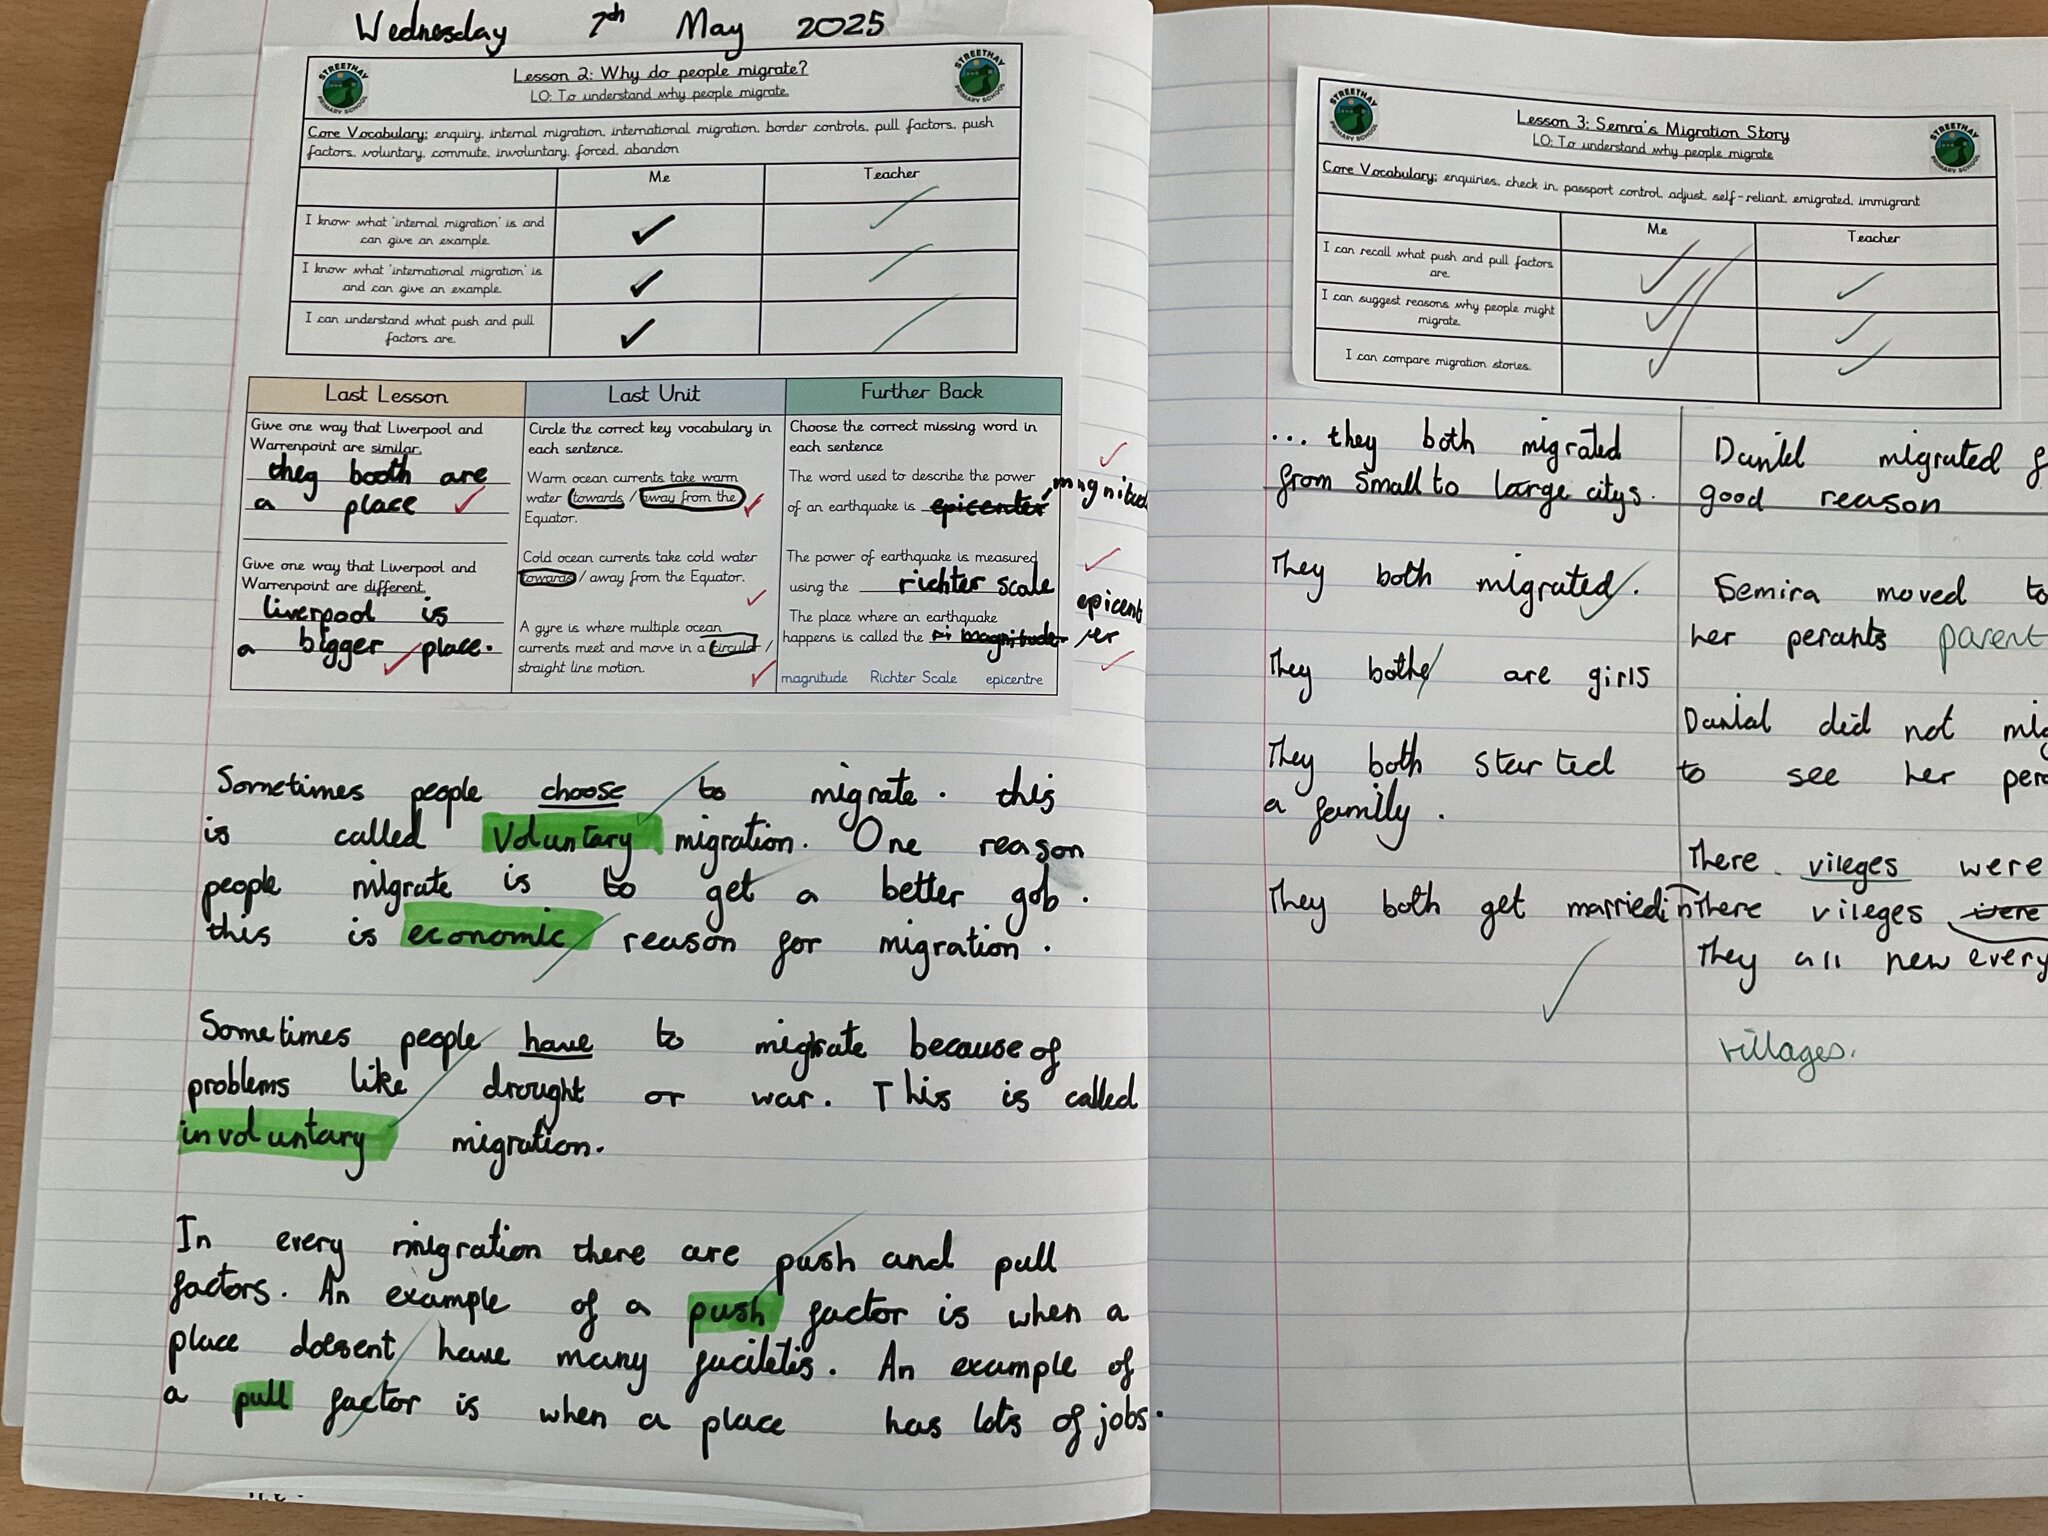 Wednesday 7th May 2025
STREETHAY PRIMARY SCHOOL
Lesson 2: Why do people migrate?
LO: To understand why people migrate.
STREETHAY PRIMARY SCHOOL
Core Vocabulary: enquiry, internal migration, international migration, border controls, pull factors, push
factors, voluntary, commute, involuntary, forced, abandon
Me
Teacher
I know what 'internal migration' is and
can give an example.
I know what 'international migration' is
and can give an example.
I can understand what push and pull
factors are.
Last Lesson
Give one way that Liverpool and
Warrenpoint are similar.
they booth are
a place
Give one way that Liverpool and
Warrenpoint are different.
liverpool is
a bigger place.
Last Unit
Circle the correct key vocabulary in
each sentence.
Warm ocean currents take warm
water towards / away from the
Equator.
Cold ocean currents take cold water
towards / away from the Equator.
A gyre is where multiple ocean
currents meet and move in a circular /
straight line motion.
Further Back
Choose the correct missing word in
each sentence
The word used to describe the power
of an earthquake is epicenter
The power of earthquake is measured
using the richter scale
The place where an earthquake
happens is called the magnitude
epicent
er
magnitude Richter Scale epicentre
Sometimes people choose to migrate. this
is called voluntary migration. One reason
people migrate is to get a better gob.
this is economic reason for migration.
Sometimes people have to migrate because of
problems like drought or war. This is called
involuntary migration.
In every migration there are push and pull
factors. An example of a push factor is when a
place doesent have many faciletis. An example of
a pull factor is when a place has lots of jobs.
STREETHAY PRIMARY SCHOOL
Lesson 3: Semra's Migration Story
LO: To understand why people migrate
STREETHAY PRIMARY SCHOOL
Core Vocabulary: enquiries, check in, passport control, adjust, self-reliant, emigrated, immigrant
Me
Teacher
I can recall what push and pull factors
are.
I can suggest reasons why people might
migrate.
I can compare migration stories.
... they both migrated
from small to large citys.
They both migrated.
They bothe are girls
They both started
a family.
They both get married in
Daniel migrated f
good reason
Semira moved to
her perants parent
Danial did not mig
to see her pera
There vileges were
There vileges were
They all new every
villages.